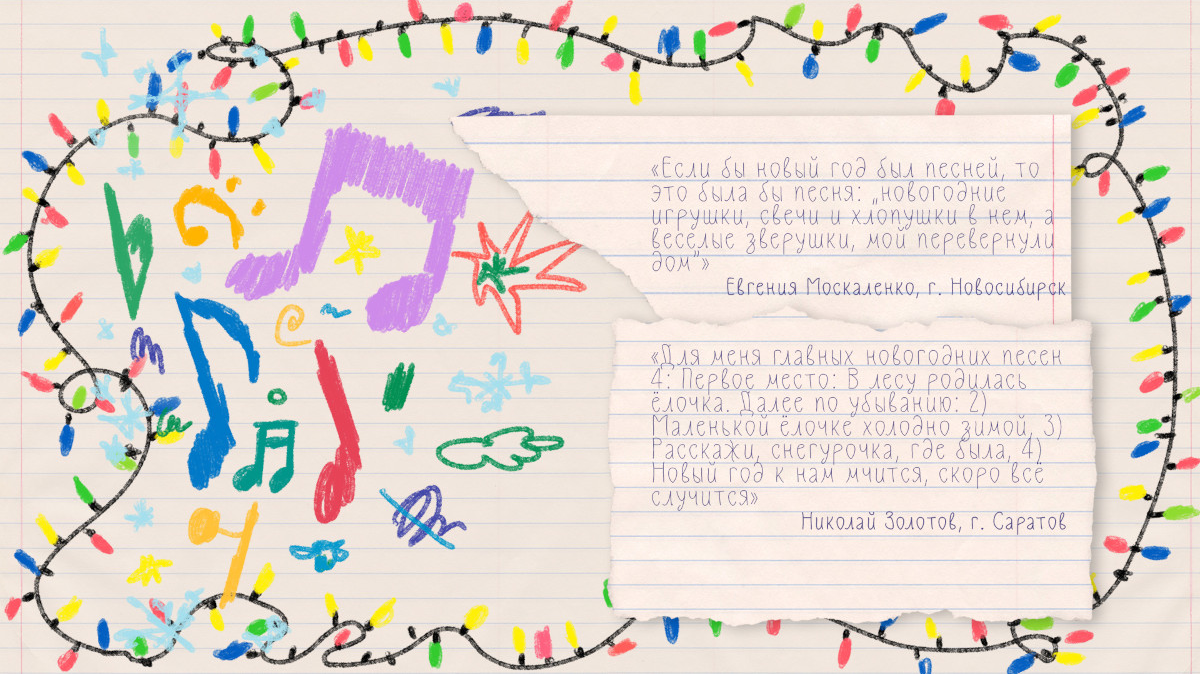 «Если бы новый год был песней, то
это была бы песня: „новогодние
игрушки, свечи и хлопушки в нем, а
веселые зверушки, мой перевернули
дом"»
Евгения Москаленко, г. Новосибирск
«Для меня главных новогодних песен
4: Первое место: В лесу родилась
ёлочка. Далее по убыванию: 2)
Маленькой ёлочке холодно зимой, 3)
Расскажи, снегурочка, где была, 4)
Новый год к нам мчится, скоро всё
случится»
Николай Золотов, г. Саратов